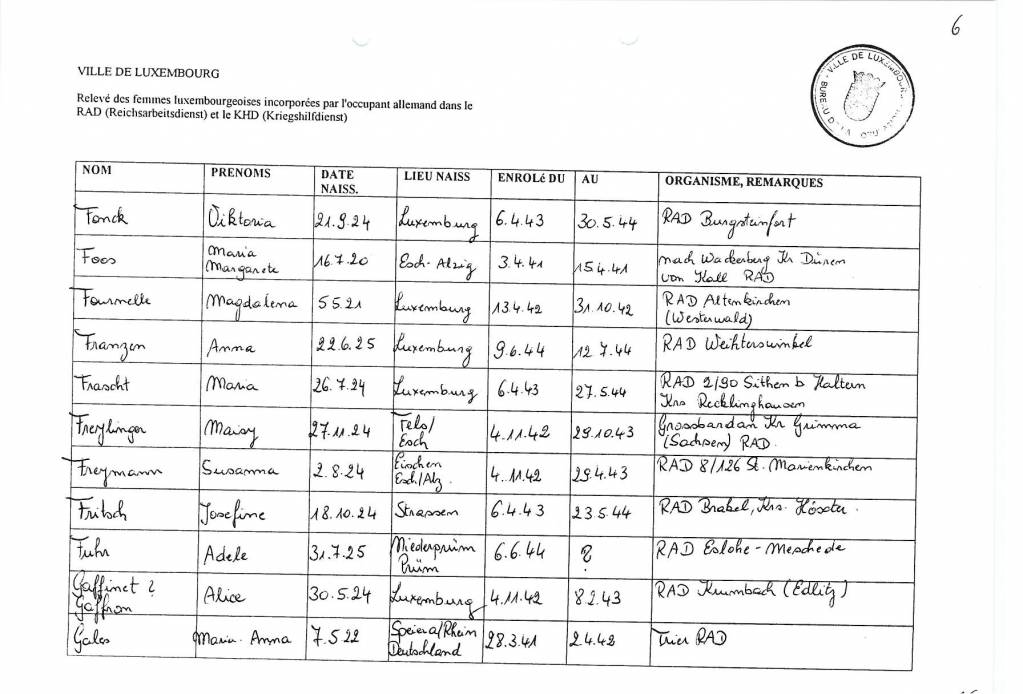 6
VILLE DE LUXEMBOURG
Relevé des femmes luxembourgeoises incorporées par l'occupant allemand dans le
RAD (Reichsarbeitsdienst) et le KHD (Kriegshilfdienst)
VILLE DE LUXEMBOURG
BUREAU DE LA
NOM PRENOMS DATE NAISS. LIEU NAISS ENROLé DU AU ORGANISME, REMARQUES
Fonck Viktoria 21.9.24 Luxemburg 6.4.43 30.5.44 RAD Burgsteinfort
Foos Maria Margarete 16.7.20 Esch-Alzig 3.4.41 15.4.41 nach Wackerberg Kr Düren
von Kall RAD
Fournelle Magdalena 5 5.21 Luxemburg 13.4.42 31.10.42 RAD Altenkirchen
(Westerwald)
Franzen Anna 22.6.25 Luxemburg 9.6.44 12 7.44 RAD Weihterswinkel
Frascht Maria 26.7.24 Luxemburg 6.4.43 27.5.44 RAD 2/90 Sithen b Haltern
Krs Recklinghausen
Freylinger Maisy 27.11.24 Tels/
Esch 4.11.42 29.10.43 Grossbardan Kr Grimma
(Sachsen) RAD.
Freymann Susanna 2.8.24 Eischen
Esch/Alz. 4.11.42 29.4.43 RAD 8/126 St. Marienkirchen
Fritsch Josefine 18.10.24 Strassen 6.4.43 23.5.44 RAD Brakel, Krs. Höxter.
Fuhr Adele 31.7.25 Niederprüm
Prüm 6.6.44 ? RAD Eslohe - Meschede
Gaffinet ?
Gaffron Alice 30.5.24 Luxemburg 4.11.42 8.2.43 RAD Krumbach (Edlitz)
Gales Maria-Anna 7.5 22 Speier a/Rhein
Deutschland 28.3.41 2.4.42 Trier RAD